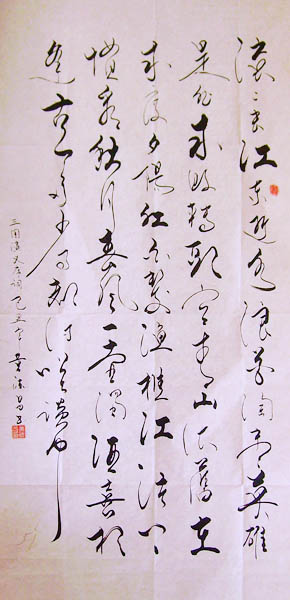 滚〻长江东逝水浪花淘尽英雄
是非成败转头空青山依旧在
几度夕陽红白发渔樵江渚上
惯看秋月春风一壶浊酒喜相
逢古今多少事都付笑谈中
三国演义卷词